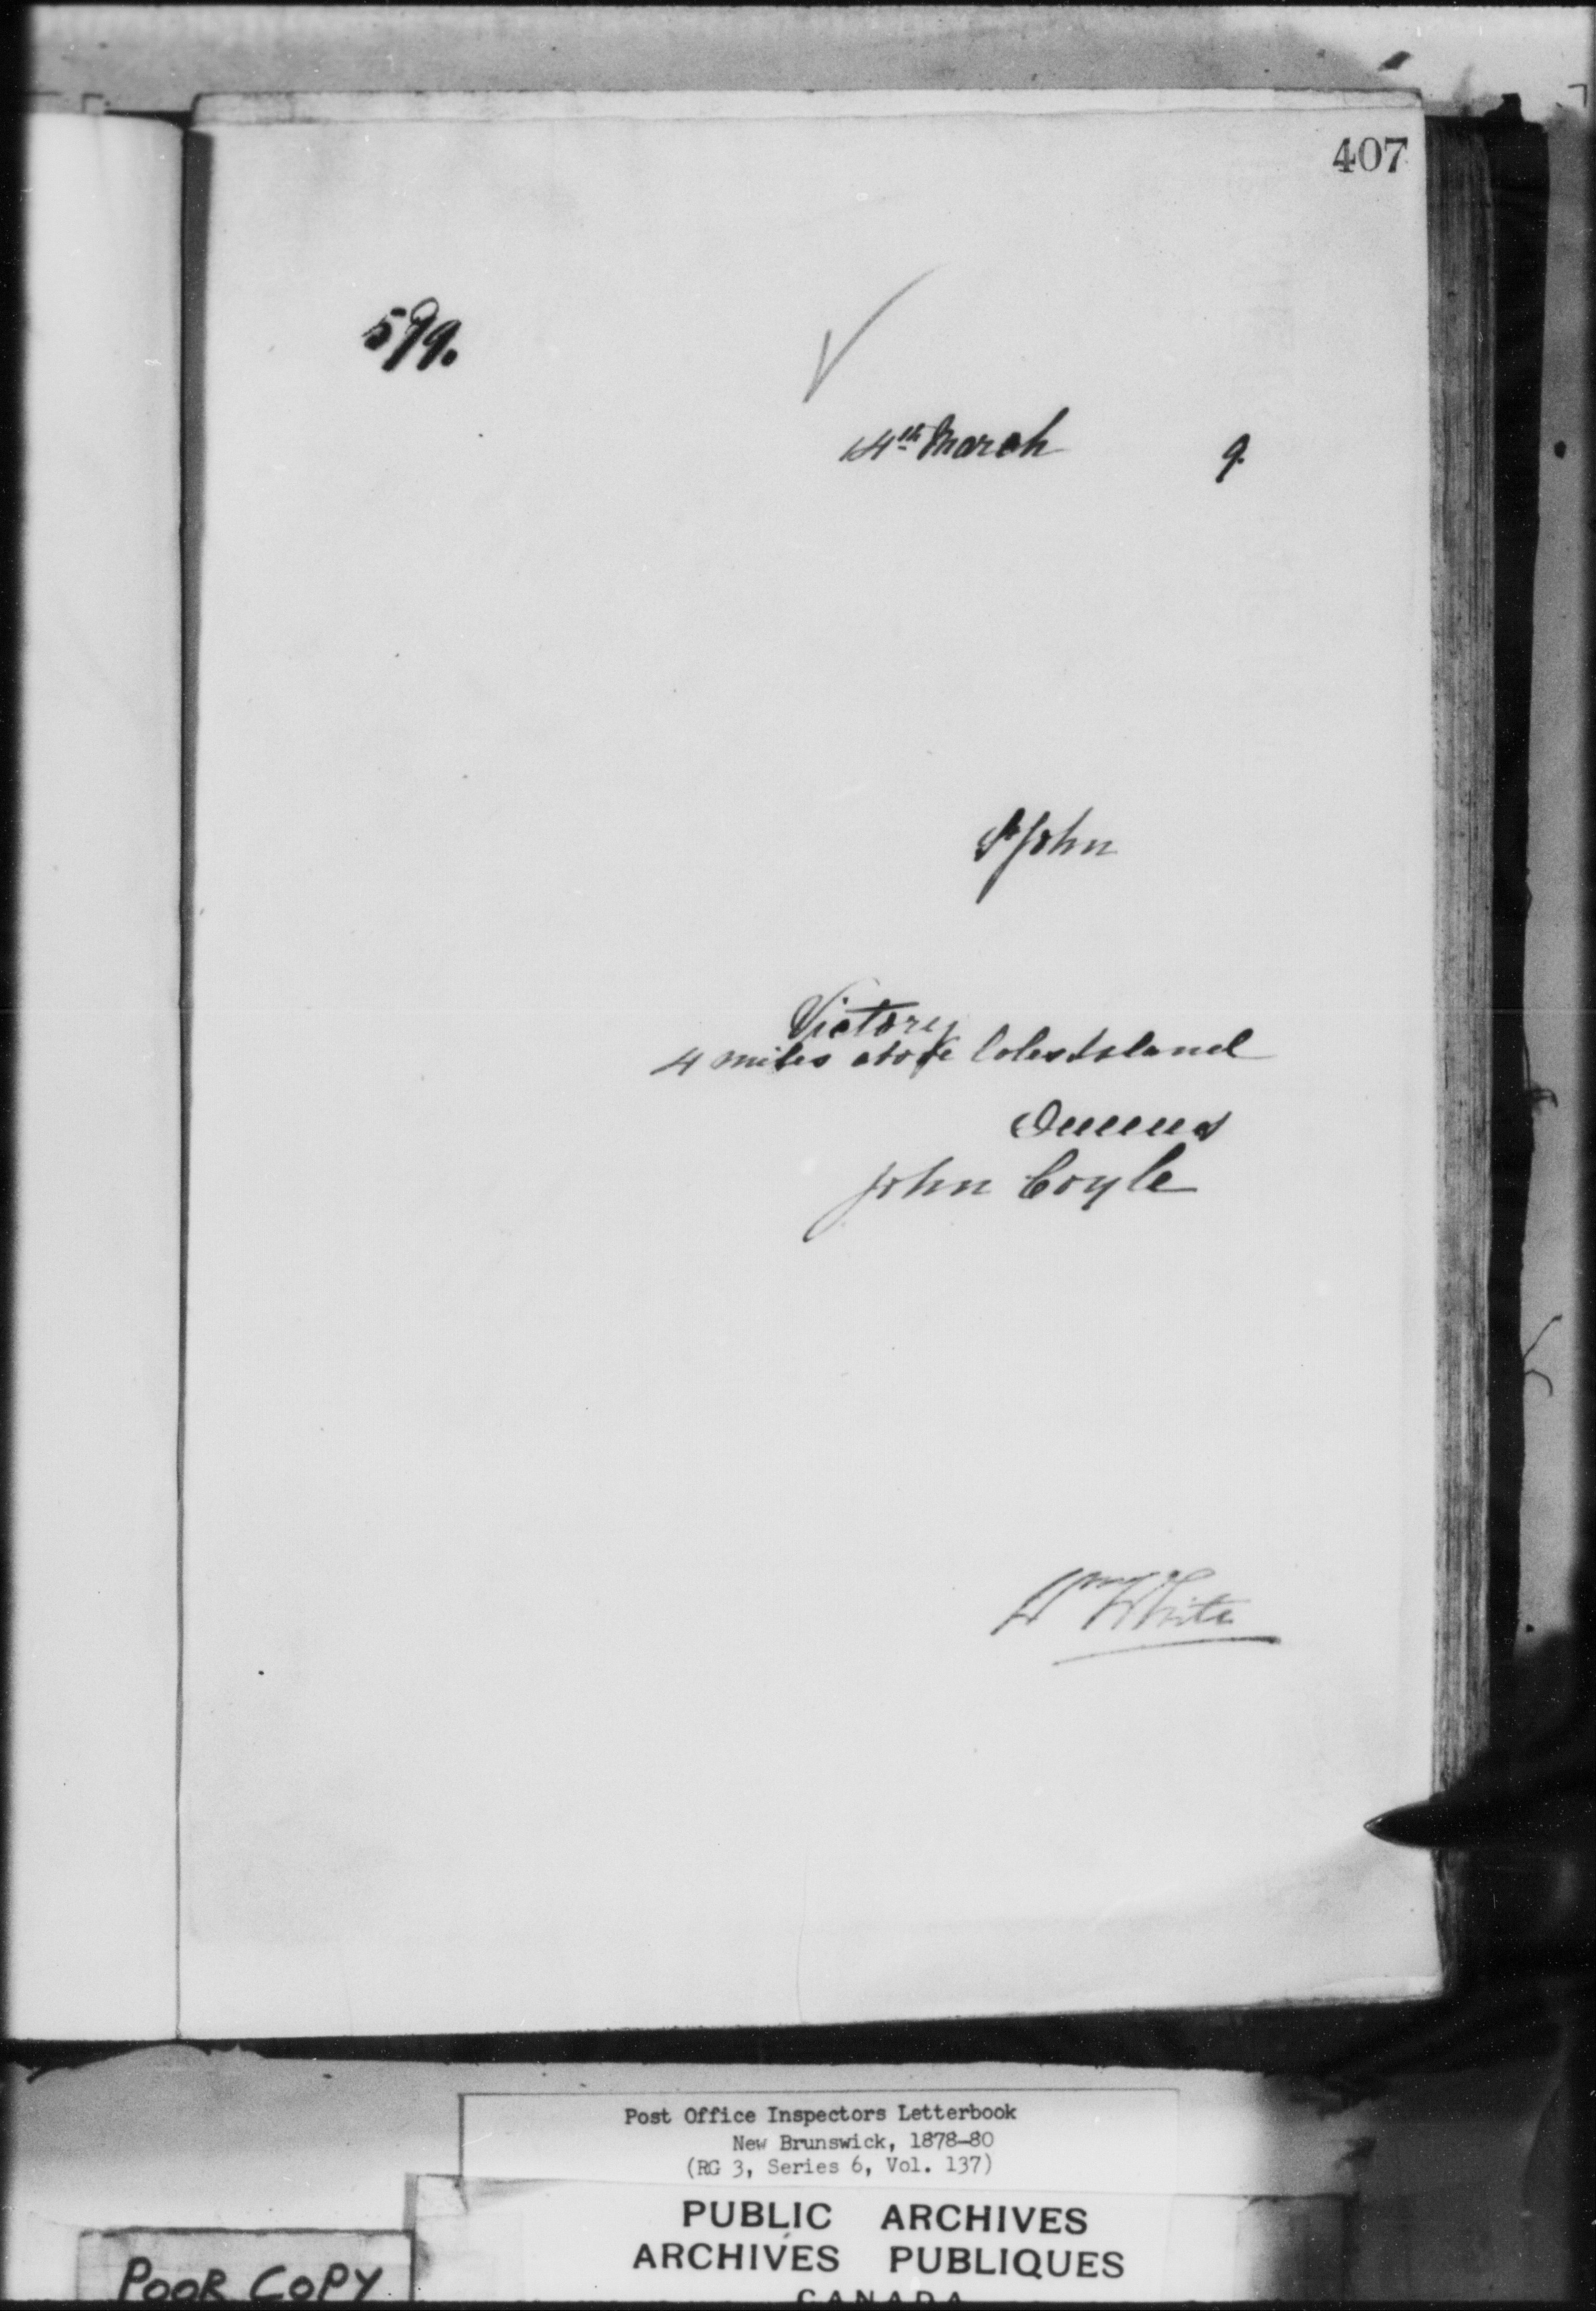 407
599.
14th March 9.
St John
Victory
4 miles above Coles Island
Queens
John Coyle
Wm White
Post Office Inspectors Letterbook
New Brunswick, 1878-80
(RG 3, Series 6, Vol. 137)
PUBLIC ARCHIVES
ARCHIVES PUBLIQUES
CANADA
POOR COPY